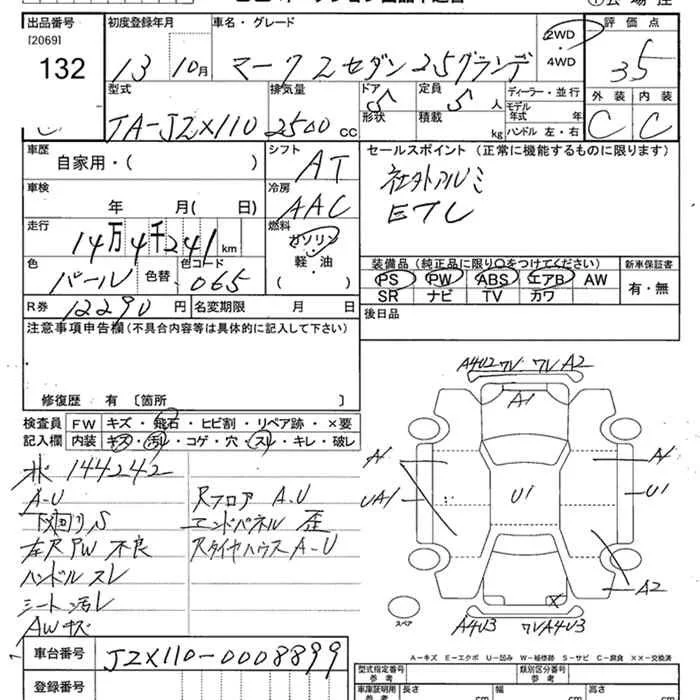 出品番号 初度登録年月 車名・グレード 評価点
[2069]
132 13 10月 マークⅡセダン 25グランデ 2WD 4WD 35
型式 排気量 ドア 定員 ディーラー・並行 外装 内装
JA-JZX110 2500 CC 5 5人 モデル年式 年 C C
形状 積載 kg ハンドル 左・右
車歴 自家用・( ) シフト AT セールスポイント(正常に機能するものに限ります)
社外アルミ
ETC
車検 年 月( 日) 冷房 AAC
走行 14万4千241km 燃料 ガソリン 軽・油 ( )
色 パール 色替 色コード 065
装備品(純正品に限り○をつけてください) 新車保証書
PS PW ABS エアB AW 有・無
SR ナビ TV カワ
R券 12290円 名変期限 月 日 後日品
注意事項申告欄(不具合内容等は具体的に記入して下さい)
修復歴 有〔箇所 〕
検査員 FW キズ・飛石・ヒビ割・リペア跡・×要
記入欄 内装 キズ・汚レ・コゲ・穴・スレ・キレ・破レ
144242
A-U RフロアA.U
下回りS エンドパネル歪
左R PW 不良 RタイヤハウスA-U
ハンドルスレ
シート汚レ
AWキズ
A4U2 ワレ ワレ A2
A1
A1 A1
UA1 U1 U1
A2
X
スペア
A4U3 ワレA4U3
A-キズ E-エクボ U-凹み W-補修跡 S-サビ C-腐食 ××-交換済
車台番号 JZX110-0008899
型式指定番号 類別区分番号
登録番号 車庫証明用 長さ cm 幅 cm 高さ cm